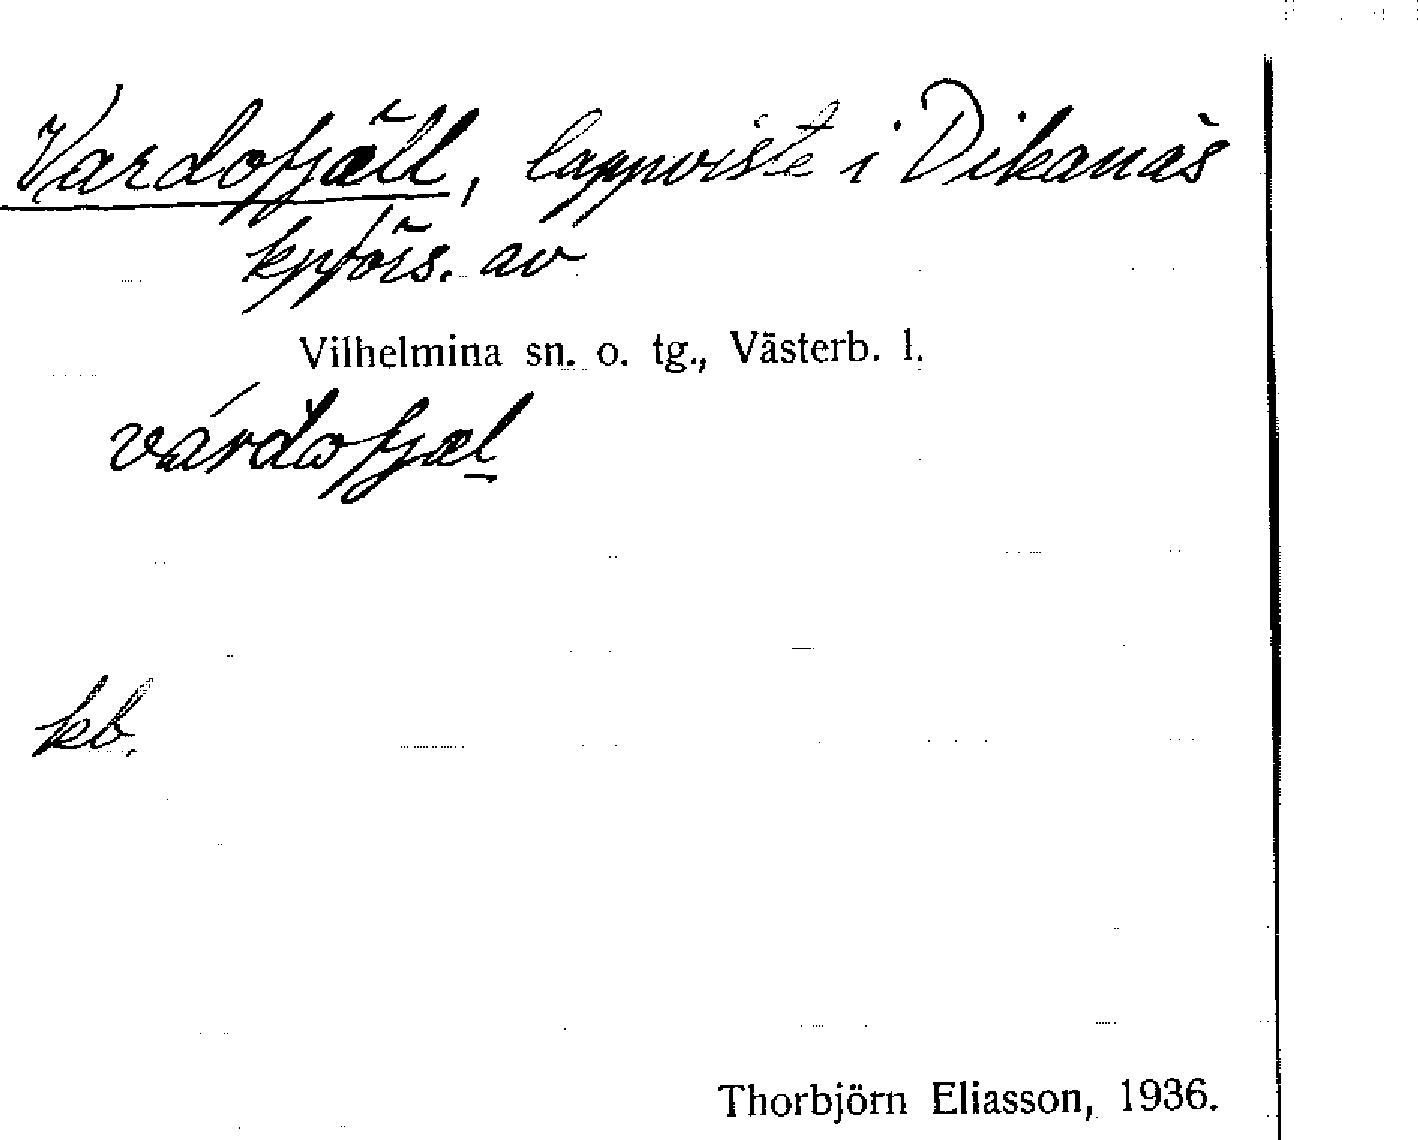 Vardofjäll, lappviste i Dikanäs
kpförs. av
Vilhelmina sn. o. tg., Västerb. l.
várdofjæl
kb.
Thorbjörn Eliasson, 1936.